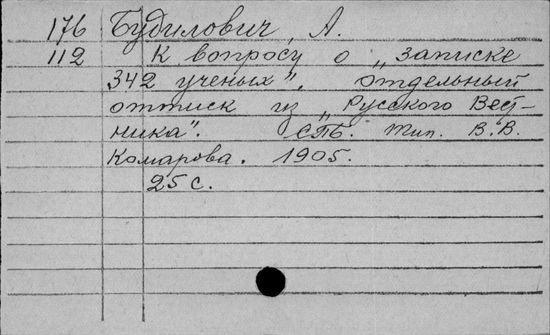 176 Будилович, А.
112 К вопросу о „записке
342 ученых". отдельный
оттиск из „Русского Вест-
ника". СПБ. Тип. В.В.
Комарова. 1905.
25 с.